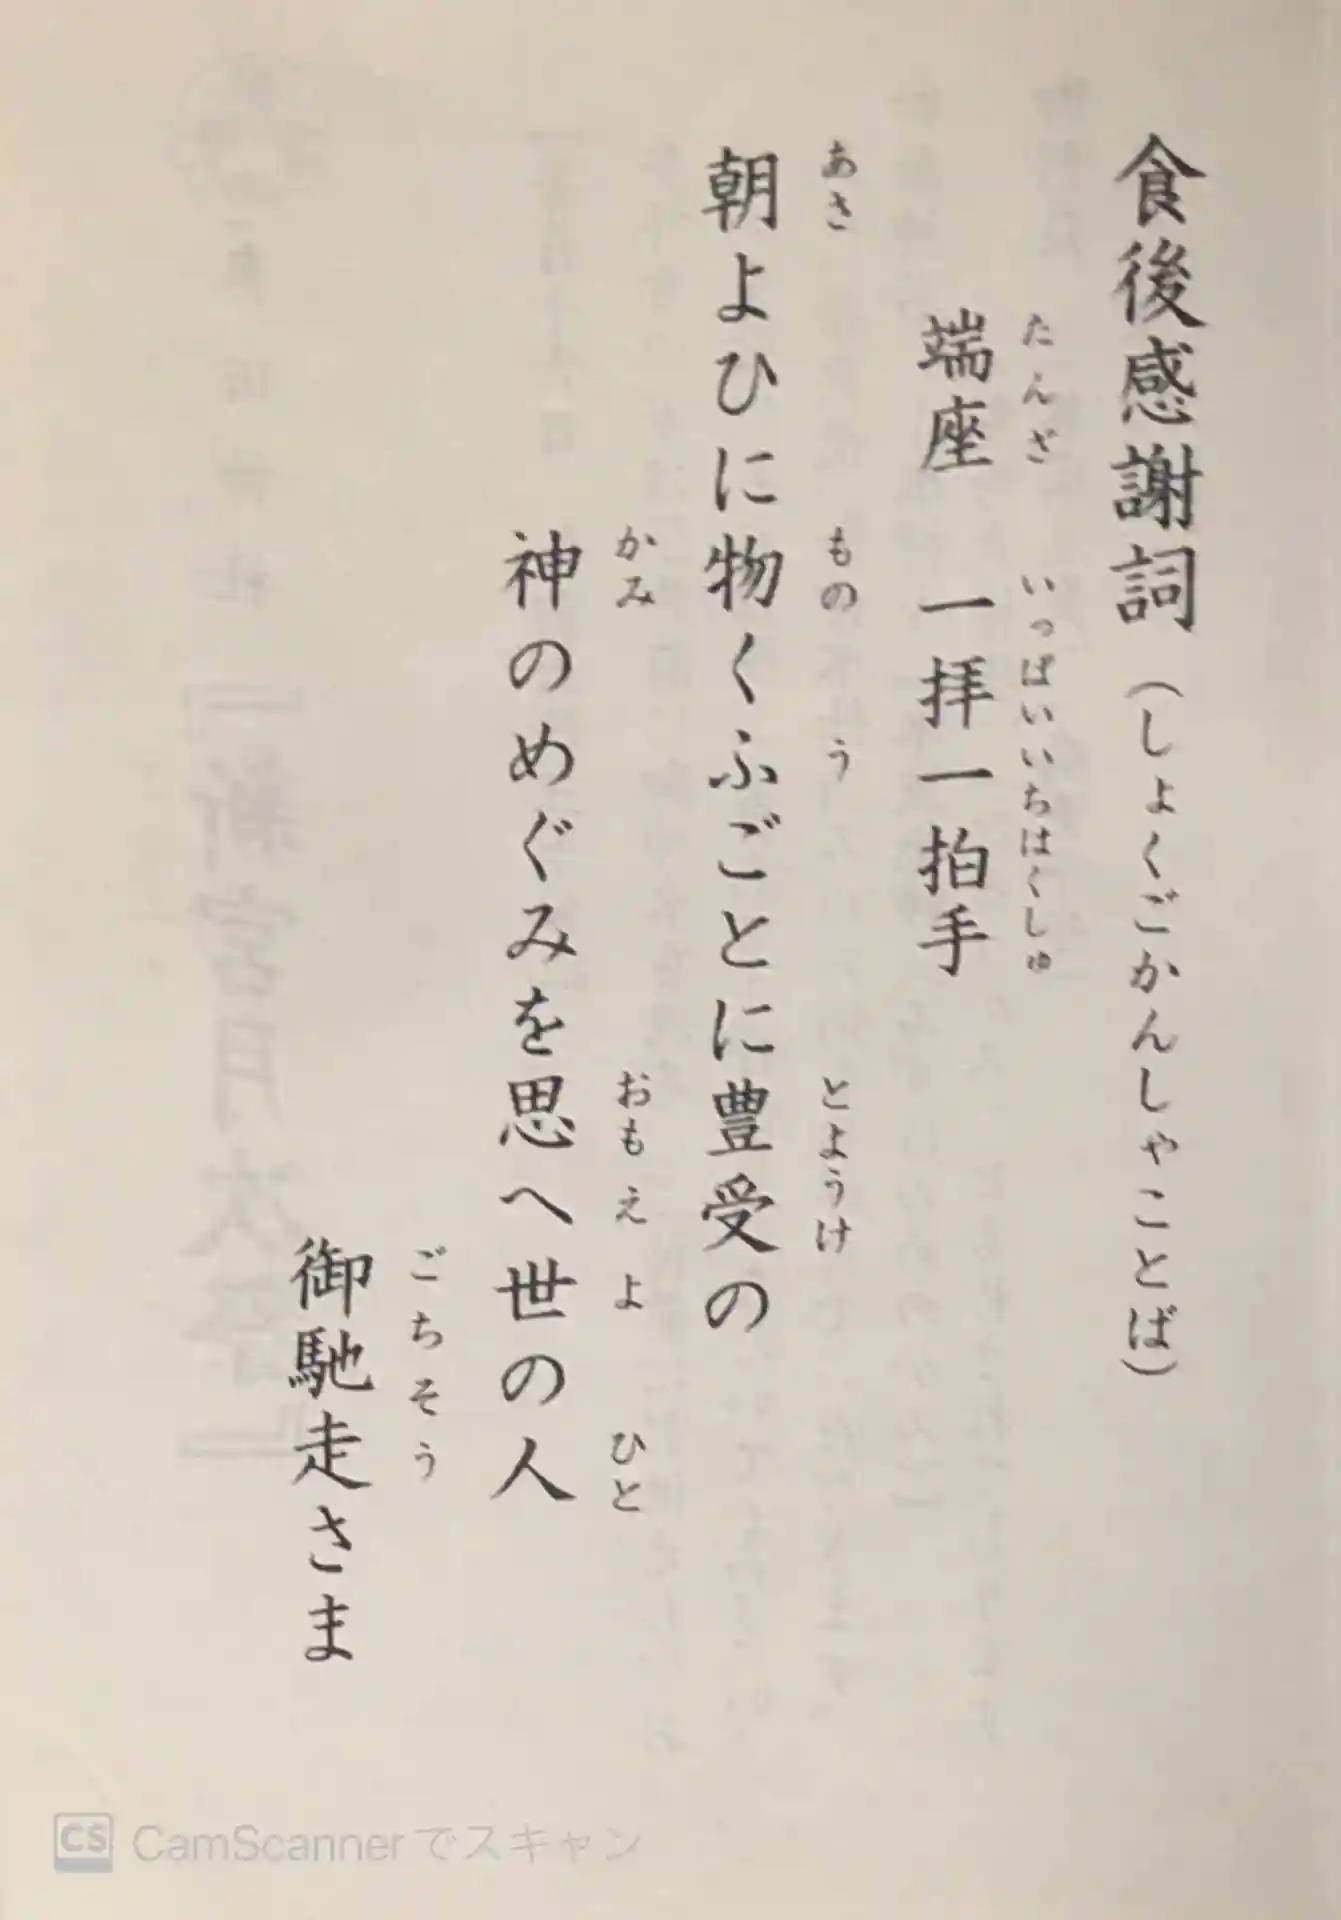 食後感謝詞（しょくごかんしゃことば）
たんざ いっぱいいちはくしゅ
端座 一拝一拍手
あさ もの う とようけ
朝よひに物くふごとに豊受の
かみ おもえ よ ひと
神のめぐみを思へ世の人
ごちそう
御馳走さま
CS CamScannerでスキャン